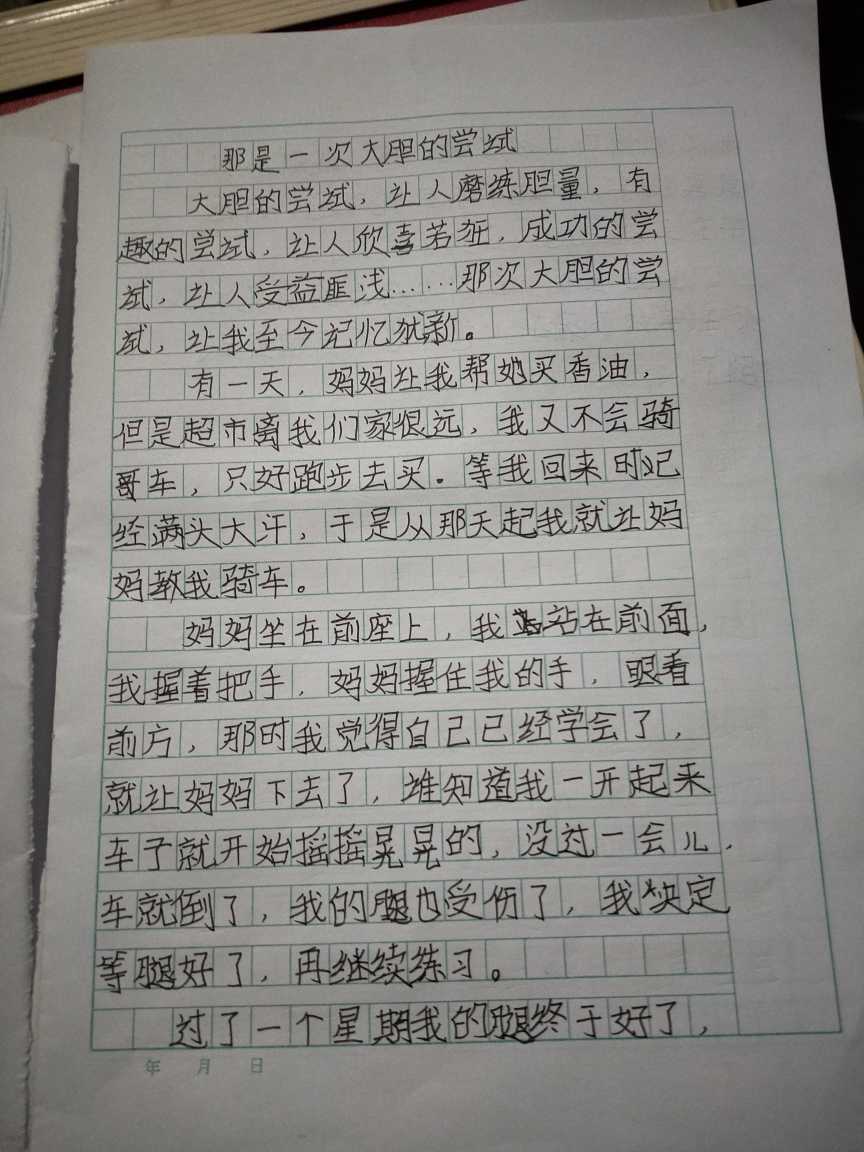 那是一次大胆的尝试
大胆的尝试，让人磨练胆量，有
趣的尝试，让人欣喜若狂，成功的尝
试，让人受益匪浅……那次大胆的尝
试，让我至今记忆犹新。
有一天，妈妈让我帮她买香油，
但是超市离我们家很远，我又不会骑
哥车，只好跑步去买。等我回来时已
经满头大汗，于是从那天起我就让妈
妈教我骑车。
妈妈坐在前座上，我站在前面，
我握着把手，妈妈握住我的手，眼看
前方，那时我觉得自己已经学会了，
就让妈妈下去了，谁知道我一开起来
车子就开始摇摇晃晃的，没过一会儿，
车就倒了，我的腿也受伤了，我决定
等腿好了，再继续练习。
过了一个星期我的腿终于好了，
年 月 日